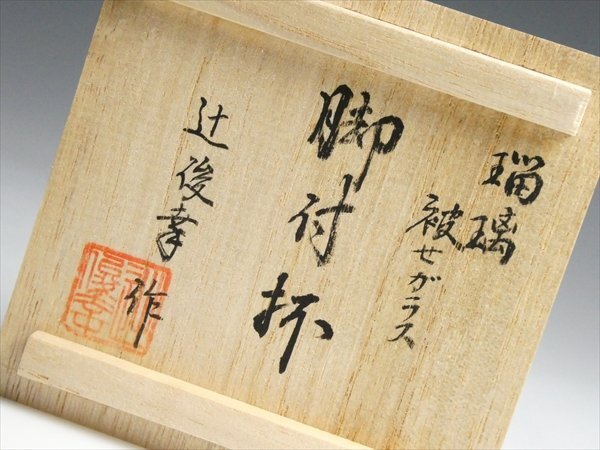 瑠璃
被せガラス
脚付杯
辻俊幸
作